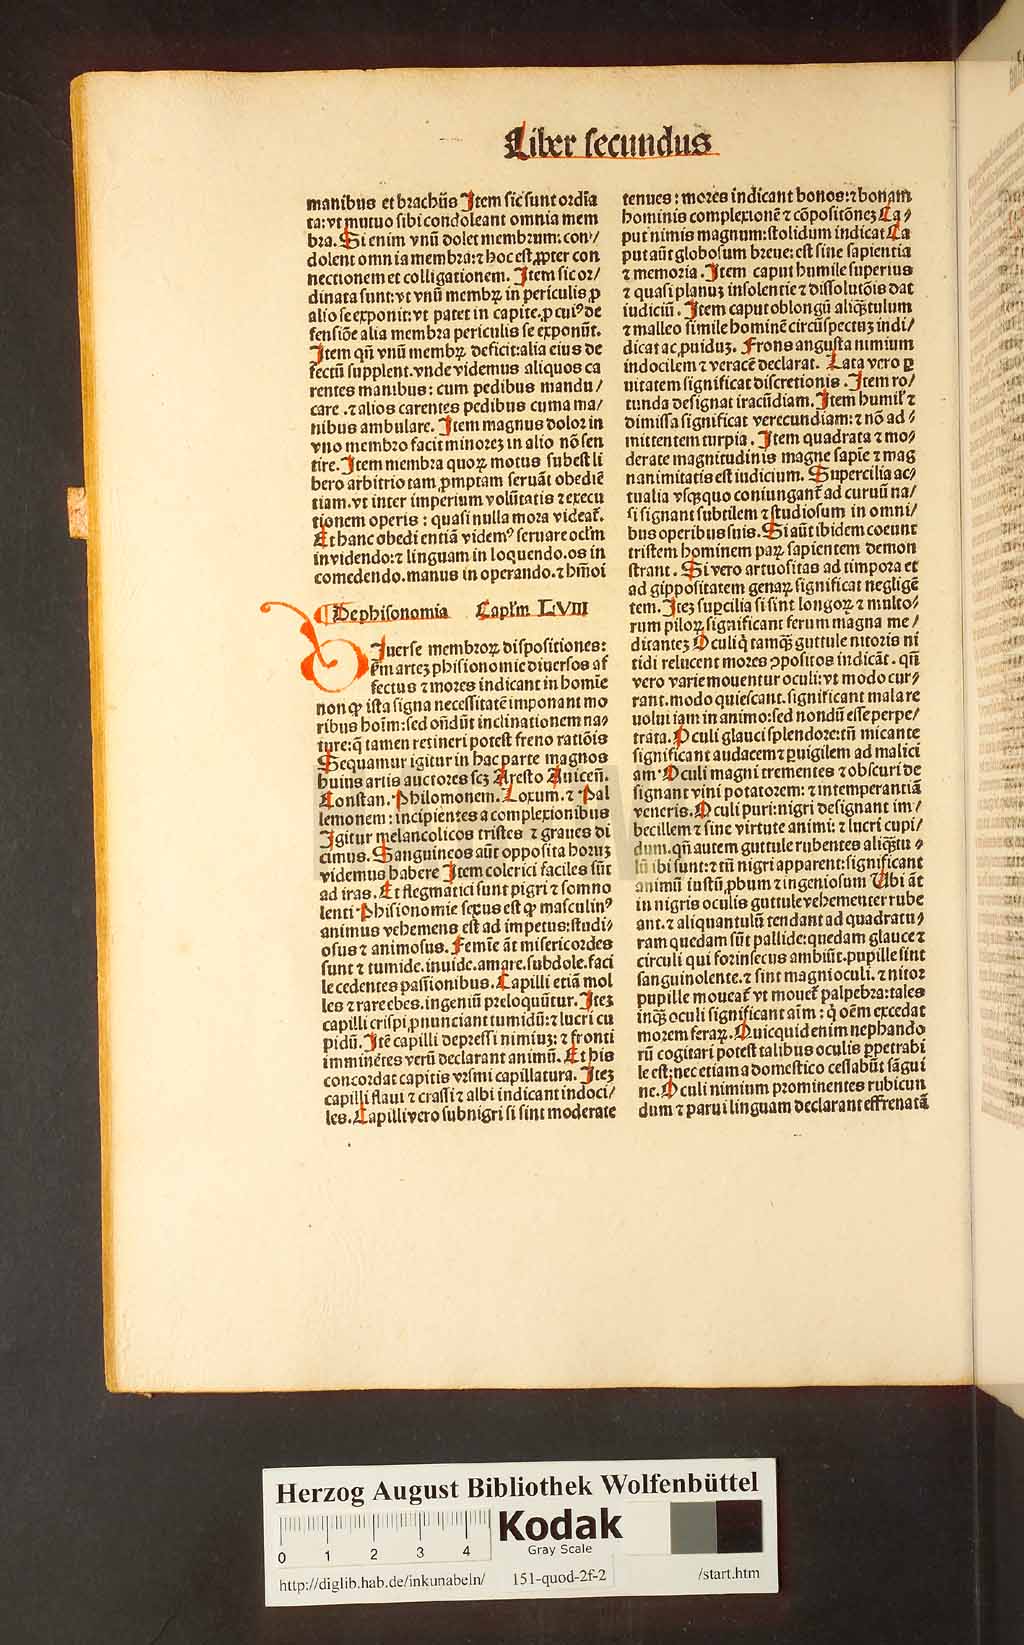 Liber secundus
manibus et brachiis Item sic sunt ordīa
ta: vt mutuo sibi condoleant omnia mem
bra. Si enim vnū dolet membrum: con/
dolent omnia membra: ⁊ hoc est ꝓpter con
nectionem et colligationem. Item sic or/
dinata sunt: vt vnū membꝝ in periculis ꝓ
alio se exponit: vt patet in capite, ꝓ cuiꝰ de
fensiōe alia membra periculis se exponūt.
Item qn̄ vnū membꝝ deficit: alia eius de
fectū supplent. vnde videmus aliquos ca
rentes manibus: cum pedibus mandu/
care .⁊ alios carentes pedibus cum a ma/
nibus ambulare. Item magnus dolor in
vno membro facit minorez in alio nō sen
tire. Item membra quoꝝ motus subest li
bero arbitrio tam ꝓmptam seruāt obediē
tiam. vt inter imperium volūtatis ⁊ execu
tionem operis: quasi nulla mora videat̄.
Et hanc obedientiā videmꝰ seruare ocl'm
in videndo: ⁊ linguam in loquendo. os in
comedendo. manus in operando. ⁊ hm̄oi
¶ De phisonomia Caplm LVIII
Diuerse membroꝝ dispositiones:
ẜm artez phisionomie diuersos af
fectus ⁊ mores indicant in homīe
non ꝙ ista signa necessitatē imponant mo
ribus hoīm: sed on̄dūt inclinationem na/
ture: q̄ tamen retineri potest freno ratiōis
Sequamur igitur in hac parte magnos
huius artis auctores scꝫ Aresto Auicen̄.
Constan. Philomonem. Loxum. ⁊ Pal
lemonem: incipientes a complexionibus
Igitur melancolicos tristes ⁊ graues di
cimus. Sanguineos aūt opposita horuꝫ
videmus habere Item colerici faciles sūt
ad iras. Et flegmatici sunt pigri ⁊ somno
lenti. Phisionomie sexus est ꝙ masculinꝰ
animus vehemens est ad impetus: studi/
osus ⁊ animosus. Femīe āt misericordes
sunt ⁊ tumide. inuide. amare. subdole. faci
le cedentes passionibus. Capilli etiā mol
les ⁊ rare ebes. ingeniū preloquūtur. Iteꝫ
capilli crispi ꝓnunciant tumidū: ⁊ lucri cu
pidū. Itē capilli depressi nimiuꝫ: ⁊ fronti
imminētes verū declarant animū. Et his
concordat capitis vrsmi capillatura. Iteꝫ
capilli flaui ⁊ crassi ⁊ albi indicant indoci/
les. Capilli vero subnigri si sint moderate
tenues: mores indicant bonos: ⁊ bonam
hominis complexionē ⁊ cōpositōneꝫ Ca/
put nimis magnum: stolidum indicat Ca
put aūt globosum breue: est sine sapientia
⁊ memoria. Item caput humile superius
⁊ quasi planuꝫ insolentie ⁊ dissolutōis dat
iudiciū. Item caput oblongū aliqꝫtulum
⁊ malleo simile hominē circūspectuꝫ indi/
dicat ac ꝓuiduꝫ. Frons angusta nimium
indocilem ⁊ veracē declarat. Lata vero ꝑ
uitatem significat discretionis. Item ro/
tunda designat iracūdiam. Item humil' ⁊
dimissa significat verecundiam: ⁊ nō ad/
mittentem turpia. Item quadrata ⁊ mo/
derate magnitudinis magne sapīe ⁊ mag
nanimitatis est iudicium. Supercilia ac/
tualia vsqꝫquo coniungant̄ ad curuū na/
si signant subtilem ⁊ studiosum in omni/
bus operibus suis. Si aūt ibidem coeunt
tristem hominem paꝝ sapientem demon
strant. Si vero artuositas ad timpora et
ad gippositatem genaꝝ significat negligē
tem. Iteꝫ suꝑcilia si sint longoꝝ ⁊ multo/
rum piloꝝ significant ferum magna me/
ditanteꝫ Oculi q̇ tamqꝫ guttule nitoris ni
tidi relucent mores ꝯpositos indicāt. qn̄
vero varie mouentur oculi: vt modo cur/
rant. modo quiescant. significant mala re
uolui iam in animo: sed nondū esse perpe/
trata. Oculi glauci splendore: tn̄ micante
significant audacem ⁊ ꝑuigilem ad malici
am. Oculi magni trementes ⁊ obscuri de
signant vini potatorem: ⁊ intemperantiā
veneris. Oculi puri: nigri designant im/
becillem ⁊ sine virtute animi: ⁊ lucri cupi/
dum. qn̄ autem guttule rubentes aliqꝫtu/
lū ibi sunt: ⁊ tn̄ nigri apparent: significant
animū iustū ꝓbum ⁊ ingeniosum Vbi āt
in nigris oculis guttule vehementer rube
ant. ⁊ aliquantulū tendant ad quadratu/
ram quedam sūt pallide: quedam glauce ⁊
circuli qui forinsecus ambiūt. pupille sint
sanguinolente. ⁊ sint magni oculi. ⁊ nitor
pupille moueat̄ vt mouet̄ palpebra: tales
inqꝫ oculi significant aīm: q̇ oēm excedat
morem feraꝝ. Quicquid enim nephando
rū cogitari potest talibus oculis ꝑpetrabi
le est: nec etiam a domestico cessabūt sāgui
ne. Oculi nimium prominentes rubicun
dum ⁊ parui linguam declarant effrenatā
Herzog August Bibliothek Wolfenbüttel
0 1 2 3 4
Kodak
Gray Scale
http://diglib.hab.de/inkunabeln/ 151-quod-2f-2 /start.htm